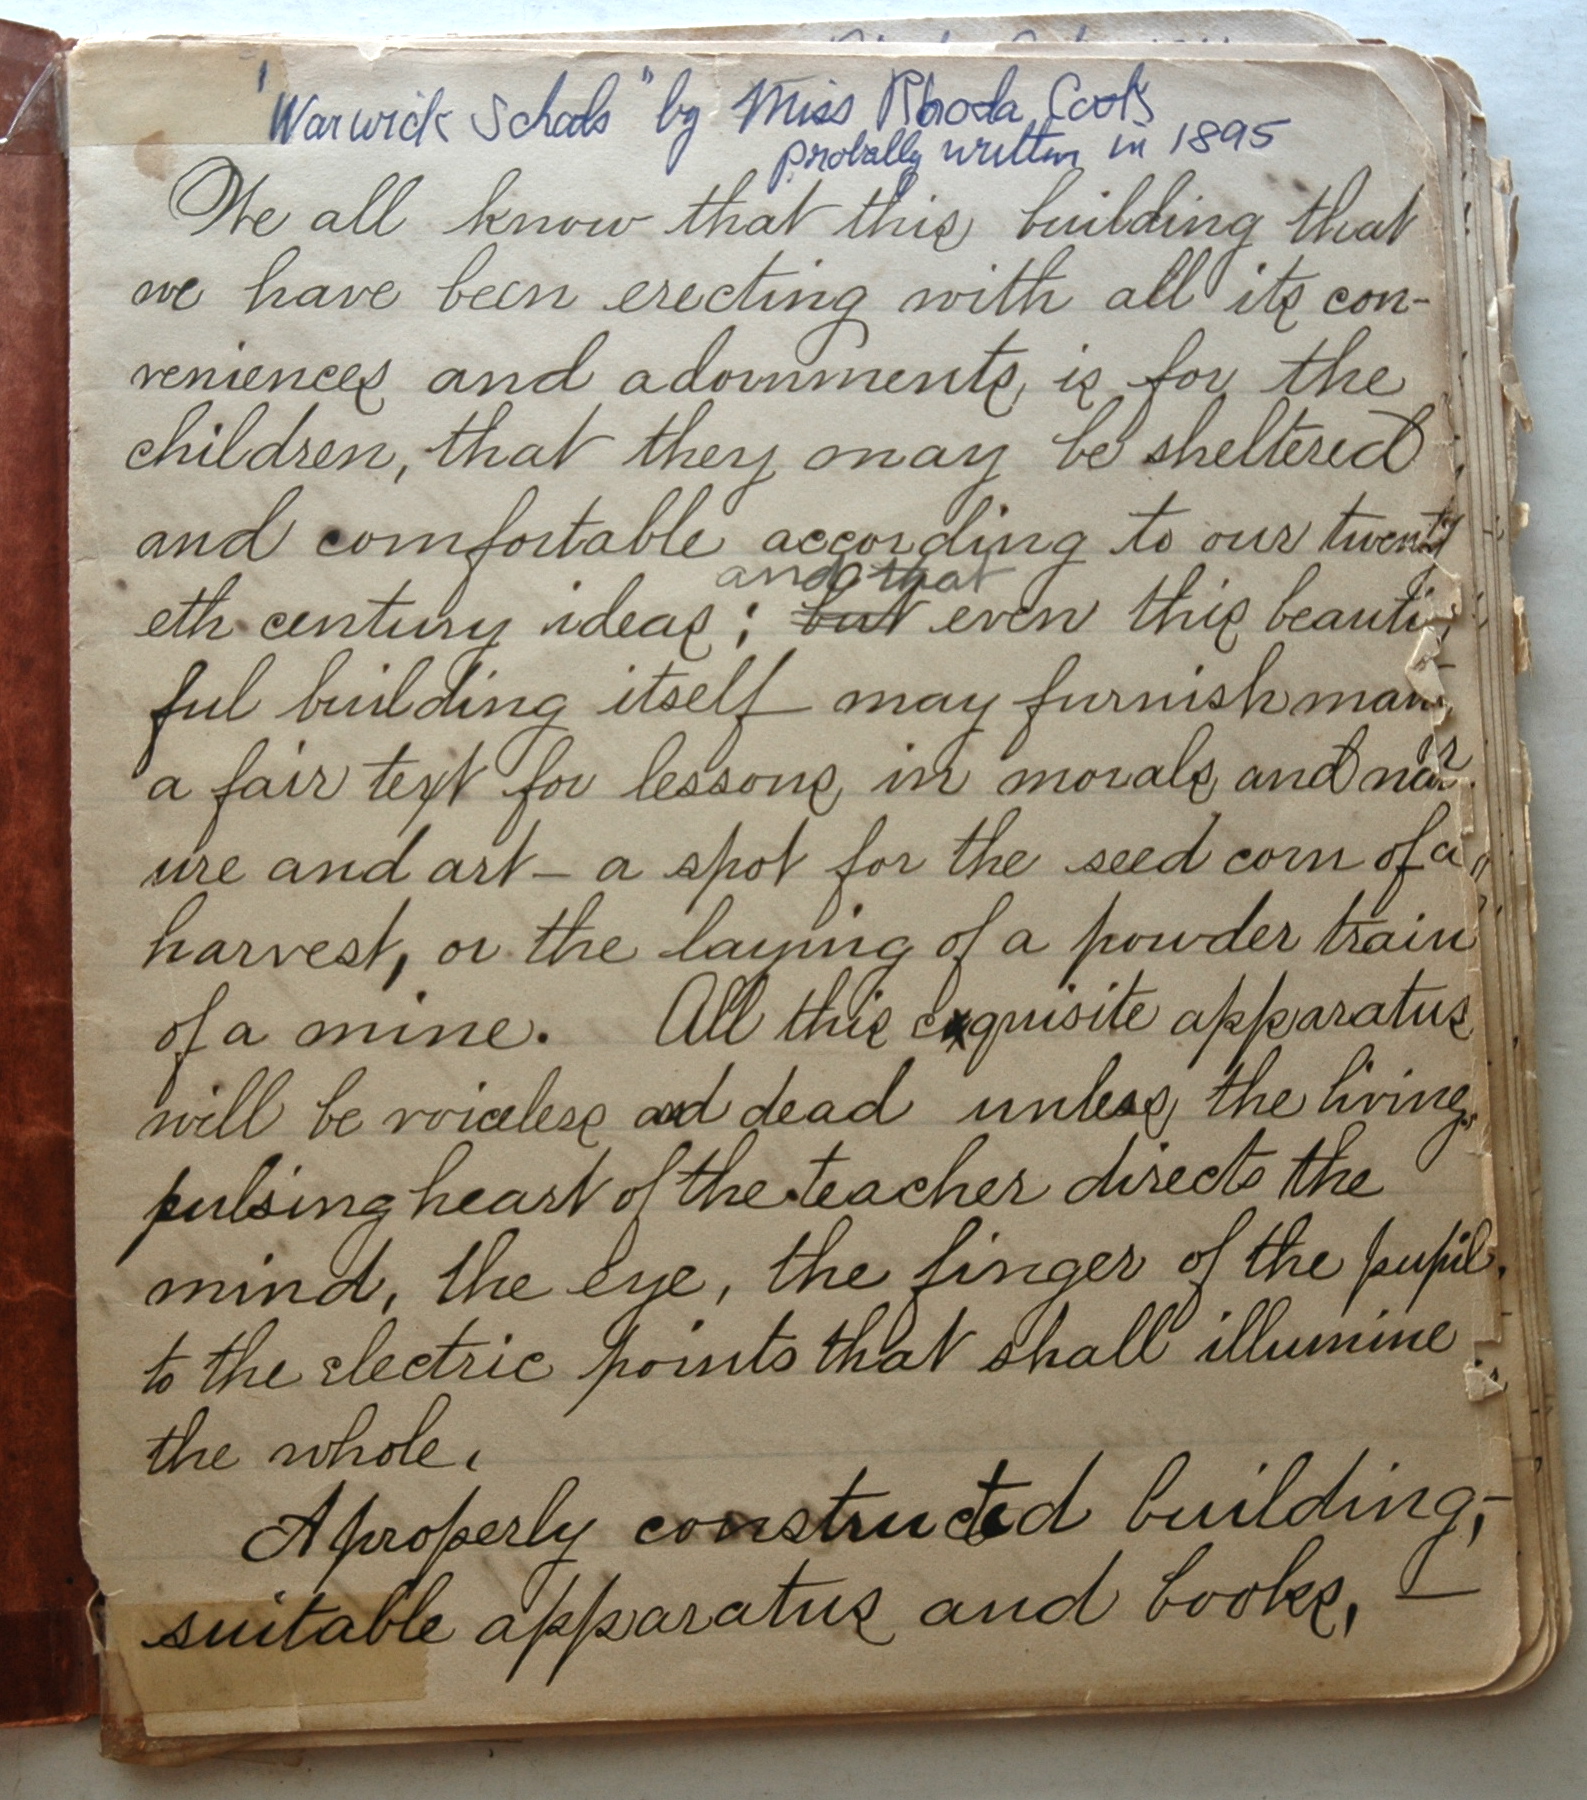 "Warwick Schools" by Miss Rhoda Cook
probally written in 1895
We all know that this building that
we have been erecting with all its con-
veniences and adornments, is for the
children, that they may be sheltered
and comfortable according to our twenty
and that
eth century ideas; but even this beauti
ful building itself may furnish many
a fair text for lessons in morals and nat
ure and art - a spot for the seed corn of a
harvest, or the laying of a powder train
of a mine. All this exquisite apparatus
will be voiceless and dead unless, the living,
pulsing heart of the teacher directs the
mind, the eye, the finger of the pupil,
to the electric points that shall illumine
the whole.
A properly constructed building,-
suitable apparatus and books, —